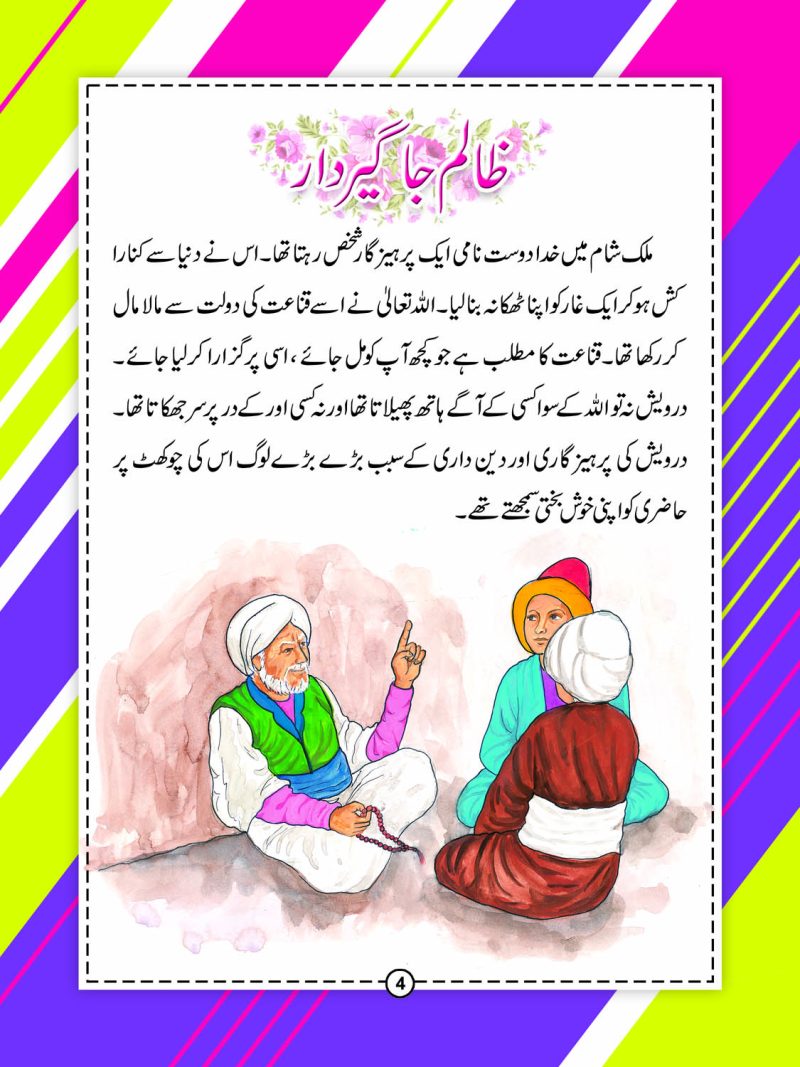 ظالم جاگیردار
ملک شام میں خدا دوست نامی ایک پرہیز گار شخص رہتا تھا۔ اس نے دنیا سے کنارا
کش ہو کر ایک غار کو اپنا ٹھکانہ بنا لیا۔ اللہ تعالیٰ نے اسے قناعت کی دولت سے مالا مال
کر رکھا تھا۔ قناعت کا مطلب ہے جو کچھ آپ کو مل جائے، اسی پر گزارا کر لیا جائے۔
درویش نہ تو اللہ کے سوا کسی کے آگے ہاتھ پھیلاتا تھا اور نہ کسی اور کے در پر سر جھکاتا تھا۔
درویش کی پرہیز گاری اور دین داری کے سبب بڑے بڑے لوگ اس کی چوکھٹ پر
حاضری کو اپنی خوش بختی سمجھتے تھے۔
4